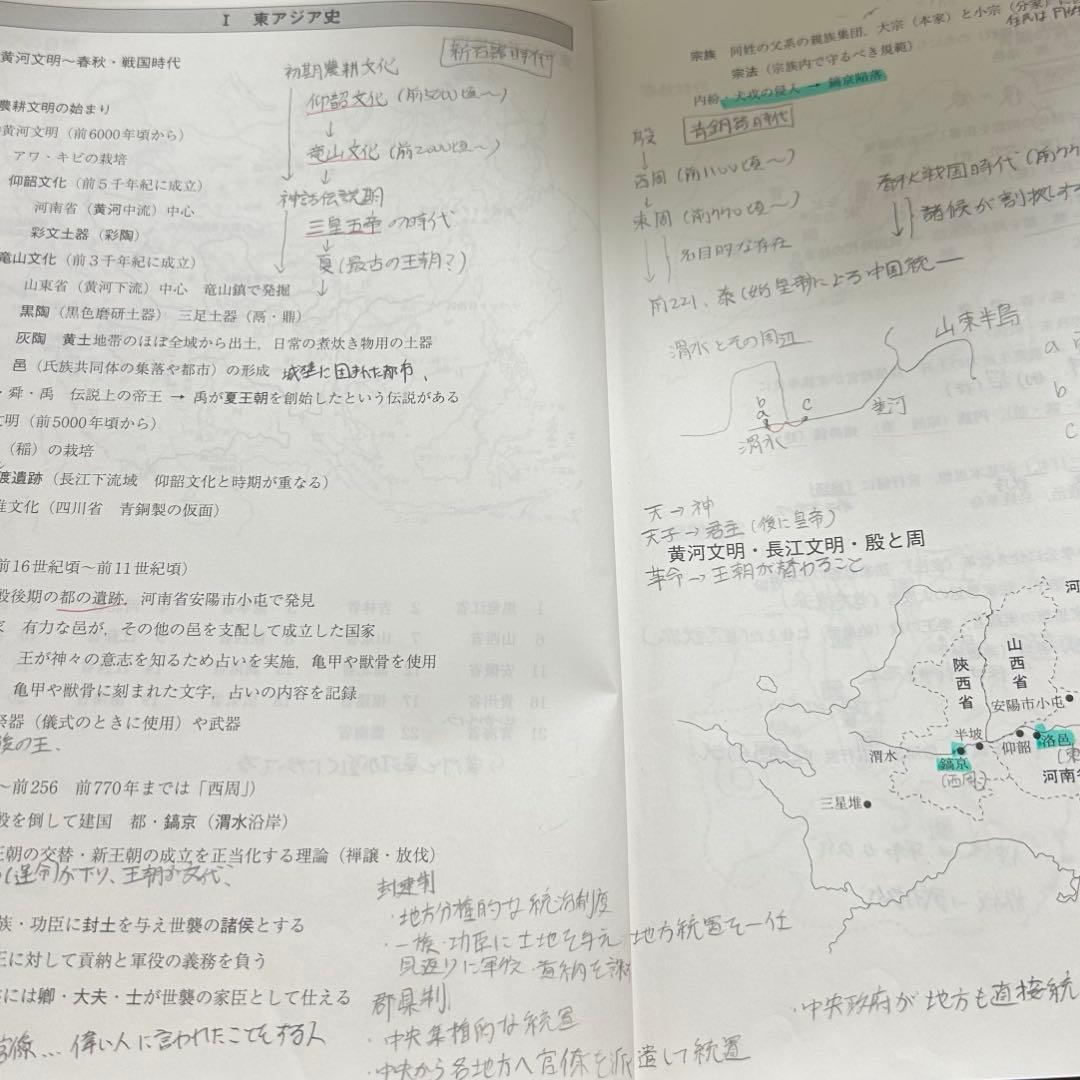 I 東アジア史
黄河文明～春秋・戦国時代
農耕文明の始まり
黄河文明（前6000年頃から）
アワ・キビの栽培
仰韶文化（前5千年紀に成立）
河南省（黄河中流）中心
彩文土器（彩陶）
竜山文化（前3千年紀に成立）
山東省（黄河下流）中心 竜山鎮で発掘
黒陶（黒色磨研土器） 三足土器（鬲・鼎）
灰陶 黄土地帯のほぼ全域から出土，日常の煮炊き物用の土器
邑（氏族共同体の集落や都市）の形成 城壁に囲まれた都市、
・舜・禹 伝説上の帝王 → 禹が夏王朝を創始したという伝説がある
文明（前5000年頃から）
（稲）の栽培
渡遺跡（長江下流域 仰韶文化と時期が重なる）
堆文化（四川省 青銅製の仮面）
前16世紀頃～前11世紀頃）
殷後期の都の遺跡，河南省安陽市小屯で発見
家 有力な邑が，その他の邑を支配して成立した国家
王が神々の意志を知るため占いを実施，亀甲や獣骨を使用
亀甲や獣骨に刻まれた文字，占いの内容を記録
祭器（儀式のときに使用）や武器
後の王、
～前256 前770年までは「西周」）
殷を倒して建国 都・鎬京（渭水沿岸）
王朝の交替・新王朝の成立を正当化する理論（禅譲・放伐）
（運命）が下り、王朝が交代、
族・功臣に封土を与え世襲の諸侯とする
王に対して貢納と軍役の義務を負う
には卿・大夫・士が世襲の家臣として仕える
官僚…偉い人に言われたことをする人
新石器時代
初期農耕文化
仰韶文化（前5000頃～）
↓
竜山文化（前2000頃～）
↓
神話伝説期
三皇五帝の時代
↓
夏（最古の王朝？）
↓
封建制
・地方分権的な統治制度
・一族・功臣に土地を与え 地方統置を一任
見返りに軍役・貢納を課
郡県制
・中央集権的な統置
・中央から各地方へ官僚を派遣して統置
宗族 同姓の父系の親族集団，大宗（本家）と小宗（分家）に
宗法（宗族内で守るべき規範）
内紛・犬戎の侵入 → 鎬京陥落
青銅器時代
殷
↓
西周（前1100頃～）
↓
東周（前770頃～）
名目的な存在
春秋戦国時代（前77
諸侯が割拠しす
前221、秦（始皇帝）による中国統一
渭水とその周辺
山東半島
a
b
c
b
a
c
黄河
渭水
天→神
天子→君主（後に皇帝）
黄河文明・長江文明・殷と周
革命→王朝が替わること
河
山西省
陝西省
安陽市小屯
半坡
仰韶
洛邑
渭水
鎬京
（西周）
（東
河南
三星堆
・中央政府が地方も直接統